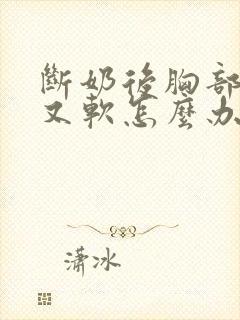 斷奶後胸部
又軟怎麼办
瀟冰